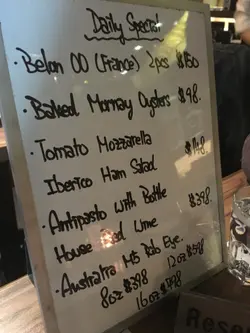 Daily Special
· Belon 00 (France) 2pcs $150
· Baked Mornay Oysters $98.
· Tomato Mozzarella
· Iberico Ham Salad $148.
· Antipasto with Bottle
House Red Wine $398.
· Australia M5 Rib Eye.
8oz $398 12oz $598
16oz $798